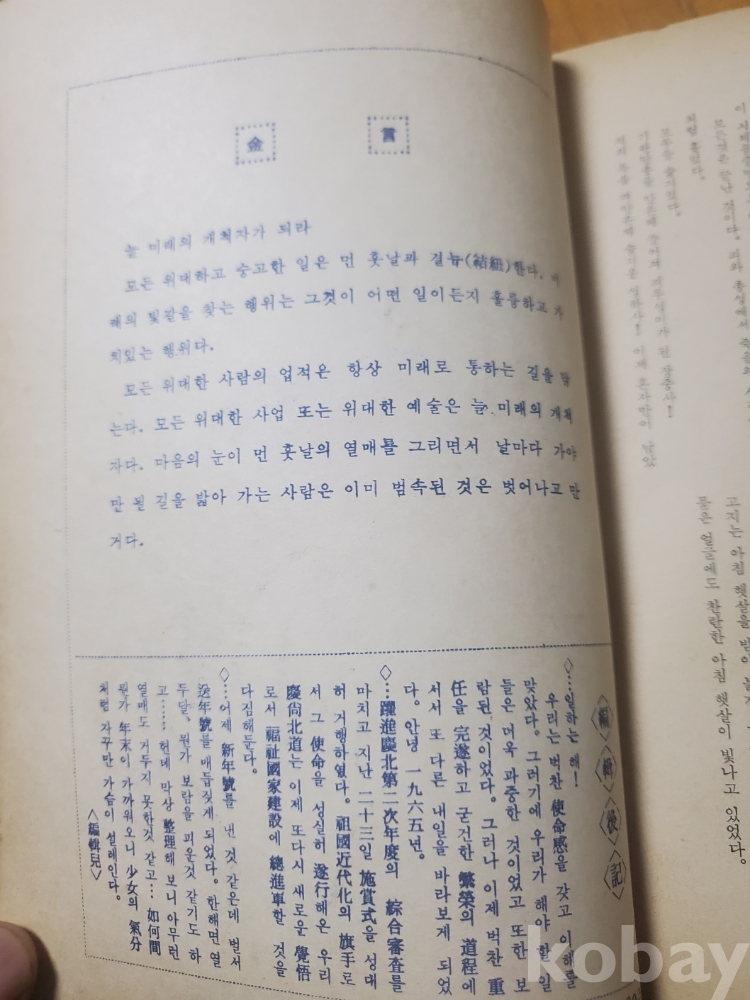 金 言
늘 미래의 개척자가 되라
모든 위대하고 숭고한 일은 먼 훗날과 결뉴(結紐)한다. 미
래의 빛깔을 찾는 행위는 그것이 어떤 일이든지 훌륭하고 가
치있는 행위다.
모든 위대한 사람의 업적은 항상 미래로 통하는 길을 닦
는다. 모든 위대한 사업 또는 위대한 예술은 늘 미래의 개척
자다. 마음의 눈이 먼 훗날의 열매를 그리면서 날마다 가야
만 될 길을 밟아 가는 사람은 이미 범속된 것은 벗어나고 만
거다.
編輯後記
◇…일하는 해!
우리는 벅찬 使命感을 갖고 이해를
맞았다. 그러기에 우리가 해야 할 일
들은 더욱 과중한 것이었고 또한 보
람된 것이었다. 그러나 이제 벅찬 重
任을 完遂하고 굳건한 繁榮의 道程에
서서 또 다른 내일을 바라보게 되었
다. 안녕 一九六五년.
◇…躍進慶北第二次年度의 綜合審査를
마치고 지난 二十三일 施賞式을 성대
히 거행하였다. 祖國近代化의 旗手로
서 그 使命을 성실히 遂行해온 우리
慶尙北道는 이제 또다시 새로운 覺悟
로서 福祉國家建設에 總進車할 것을
다짐해둔다.
◇…어제 新年號를 낸 것 같은데 벌써
送年號를 매듭짓게 되었다. 한해면 열
두달, 뭔가 보람을 피운것 같기도 하
고…… 헌데 막상 整理해 보니 아무런
열매도 거두지 못한것 같고… 如何間
뭔가 年末이 가까워오니 少女의 氣分
처럼 자꾸만 가슴이 설레인다.
<編輯兒>
고지는 아침 햇살을 받아
들은 얼굴에도 찬란한 아침 햇살이 빛나고 있었다.
kobay